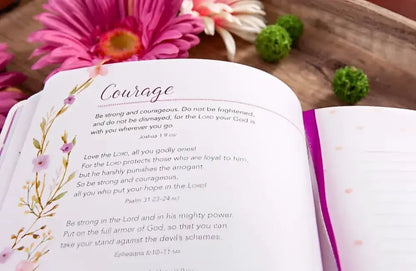 Courage
Be strong and courageous. Do not be frightened,
and do not be dismayed, for the LORD your God is
with you wherever you go.
Joshua 1:9
Love the LORD, all you godly ones!
For the LORD protects those who are loyal to him,
but he harshly punishes the arrogant.
So be strong and courageous,
all you who put your hope in the LORD!
Psalm 31:23-24
Be strong in the Lord and in his mighty power.
Put on the full armor of God, so that you can
take your stand against the devil's schemes.
Ephesians 6:10-11